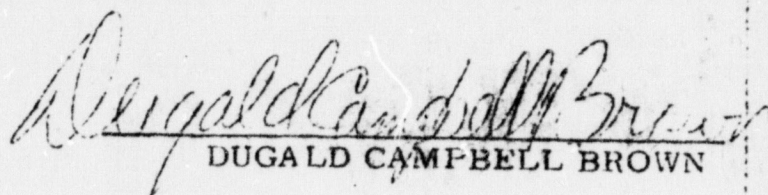 Dugald Campbell Brown
DUGALD CAMPBELL BROWN